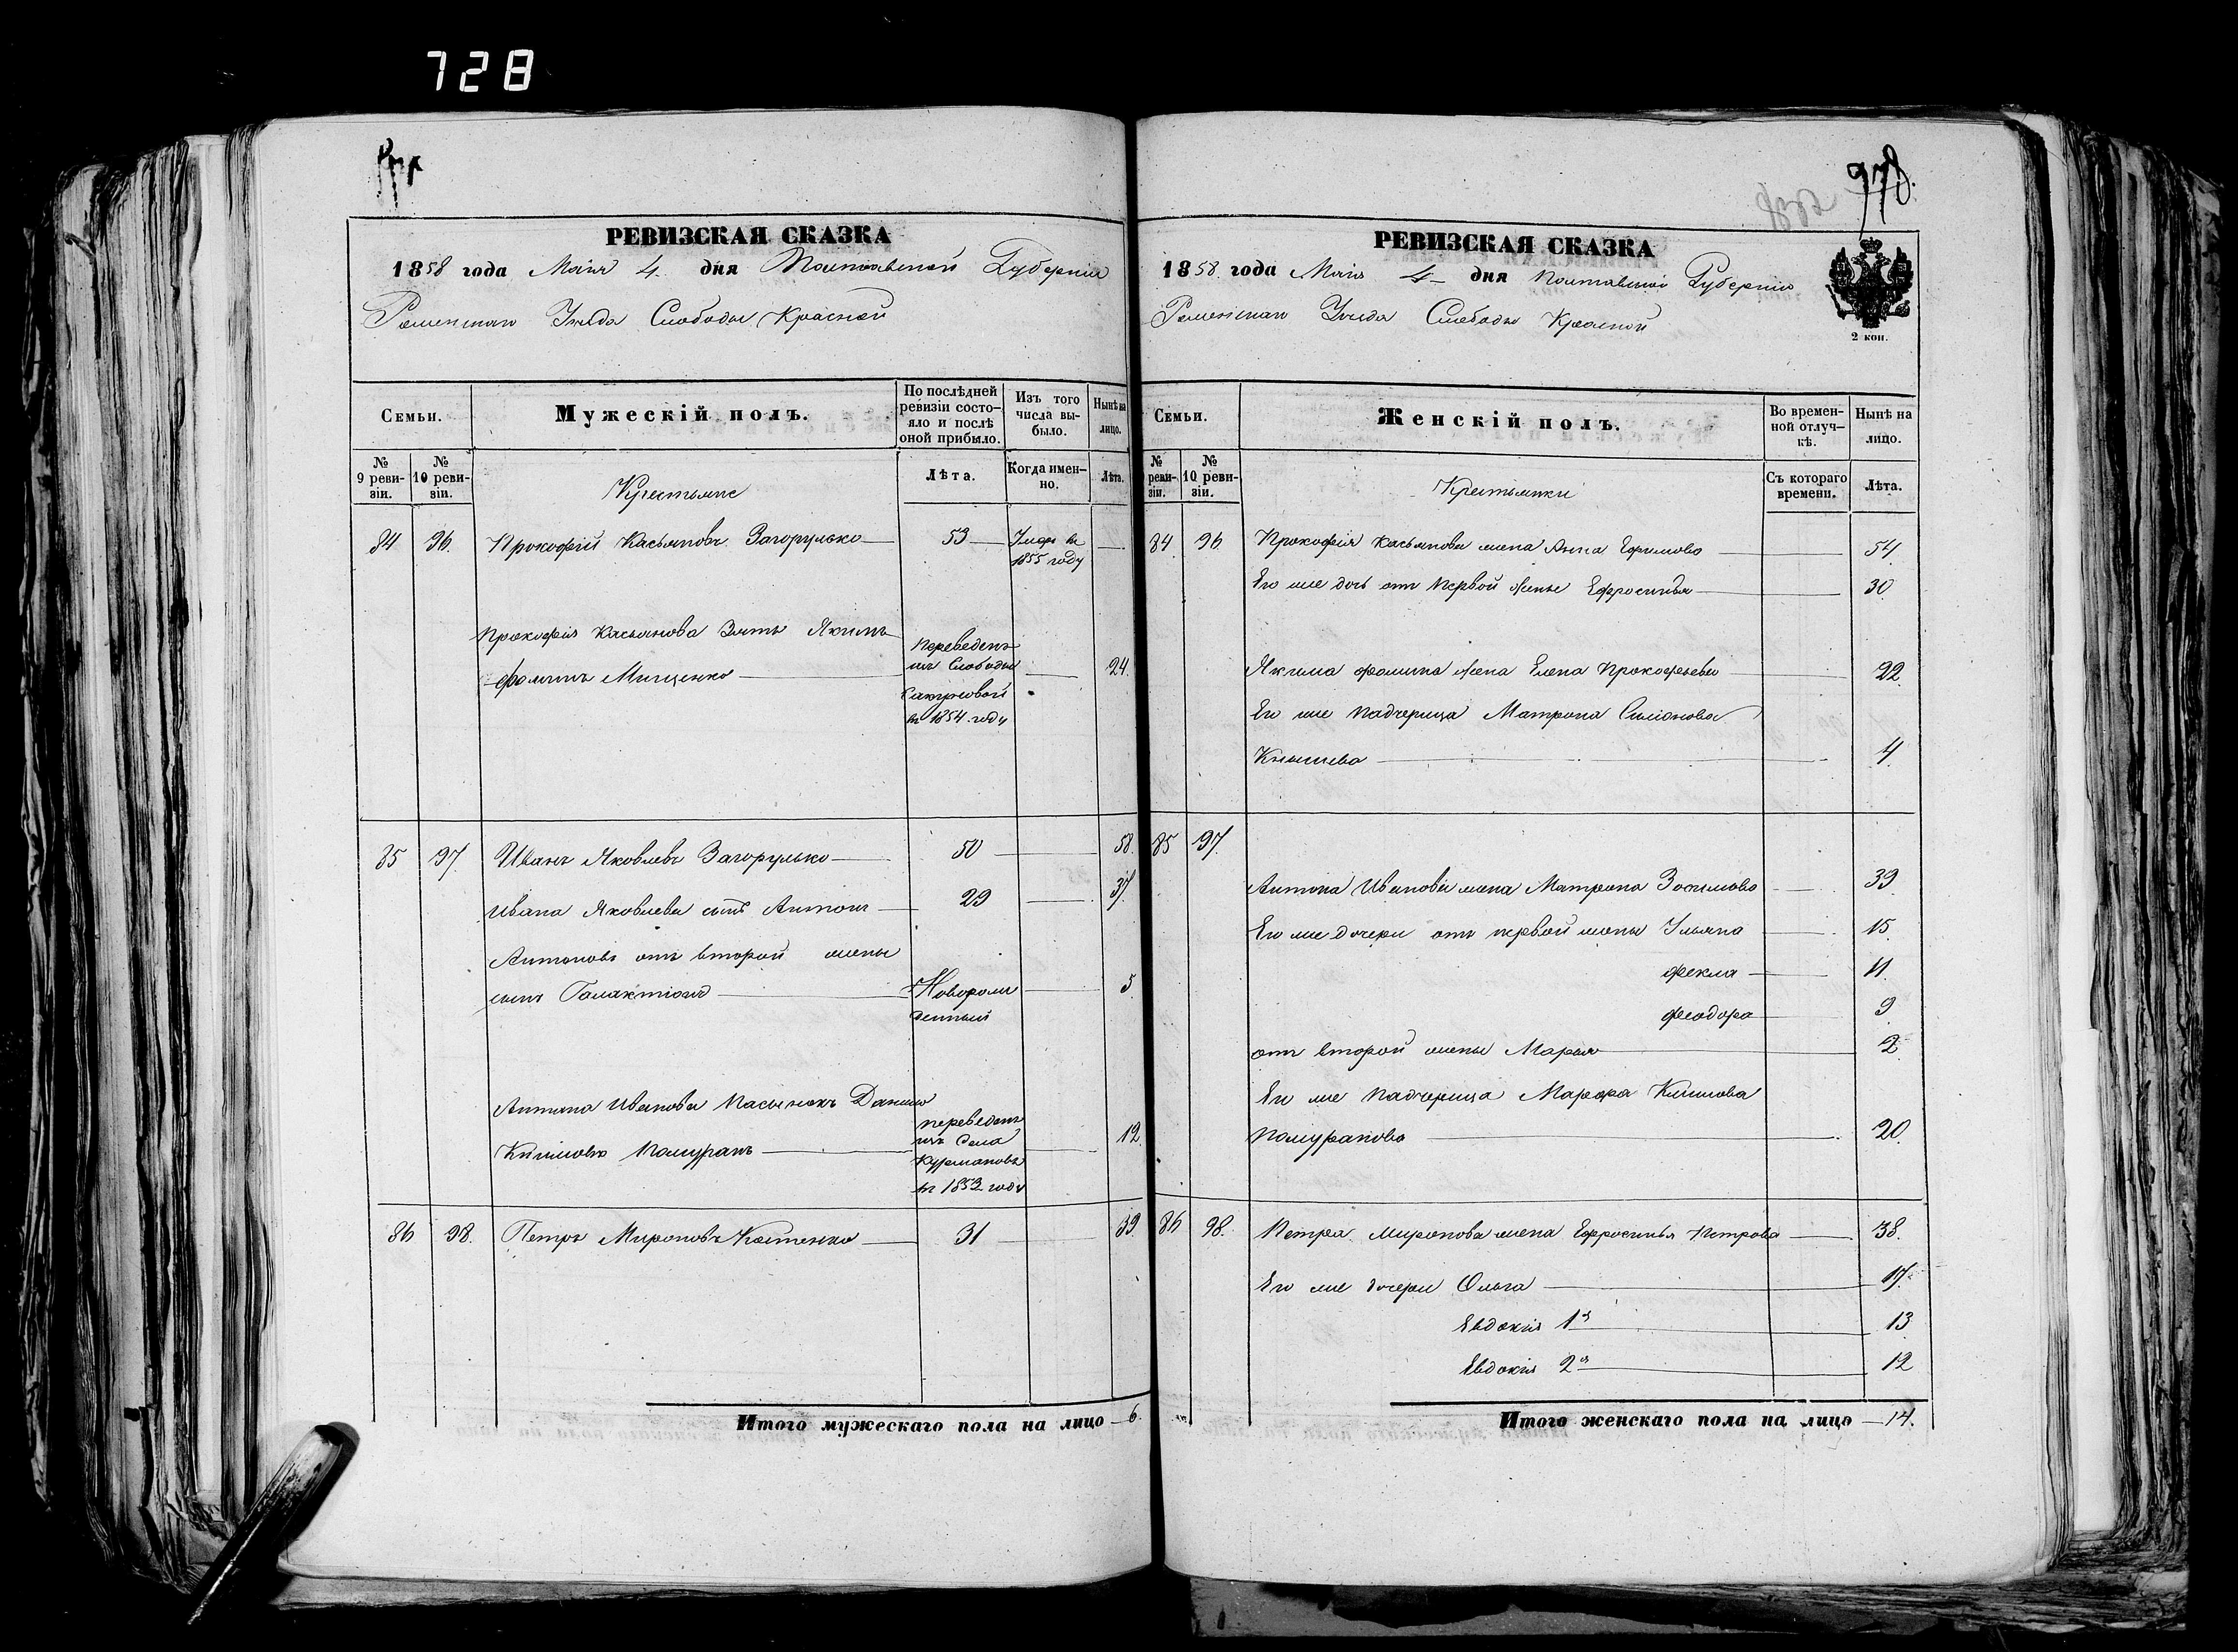 728
РЕВИЗСКАЯ СКАЗКА
1858 года Маія 4 дня Полтавской Губерніи
Роменскаго Уѣзда Слободы Красной
Семьи.
Мужескій полъ.
По послѣдней ревизіи состояло и послѣ оной прибыло.
Изъ того числа выбыло.
Нынѣ на лицо.
№ 9 ревизіи.
№ 10 ревизіи.
Крестьяне
Лѣта.
Когда именно.
Лѣта.
84 96. Прокофій Касьяновъ Загорулько 53 Умеръ въ
1855 году
Прокофія Касьянова Зять Якимъ
Фоминъ Мищенко
Переведенъ
изъ Слободы
24.
въ 1854 году
85 97. Иванъ Яковлевъ Загорулько 50 58.
Ивана Яковлева сынъ Антонъ 29 37.
Антоновъ отъ второй жены
сынъ Галактіонъ Новорож
денный 5
Антона Иванова Пасынокъ Данило
Климовъ
переведенъ
изъ Села
12
въ 1853 году
86 98. Петръ Мироновъ Костенко 31 39.
Итого мужескаго пола на лицо 6.
978.
РЕВИЗСКАЯ СКАЗКА
1858 года Маія 4 дня Полтавской Губерніи
Роменскаго Уѣзда Слободы Красной
2 коп.
Семьи.
Женскій полъ.
Во временной отлучкѣ.
Нынѣ на лицо.
№ ревизіи.
№ 10 ревизіи.
Крестьянки
Съ котораго времени.
Лѣта.
84 96. Прокофія Касьянова жена Анна Ефимова 54.
Его же дочь отъ первой жены Ефросинья 30.
Якима Фомина жена Елена Прокофьева 22.
Его же Падчерица Матрона Симонова
4.
85 97.
Антона Иванова жена Матрона Зотимова 39
Его же дочери отъ первой жены Ульяна 15.
Фекла 11.
Феодора 9
отъ второй жены Марья 2
Его же Падчерица Марфа Климова
20.
86 98. Петра Миронова жена Ефросинья Петрова 38.
Его же дочери Ольга 17.
Евдокія 1я 13
Евдокія 2я 12
Итого женскаго пола на лицо 14.